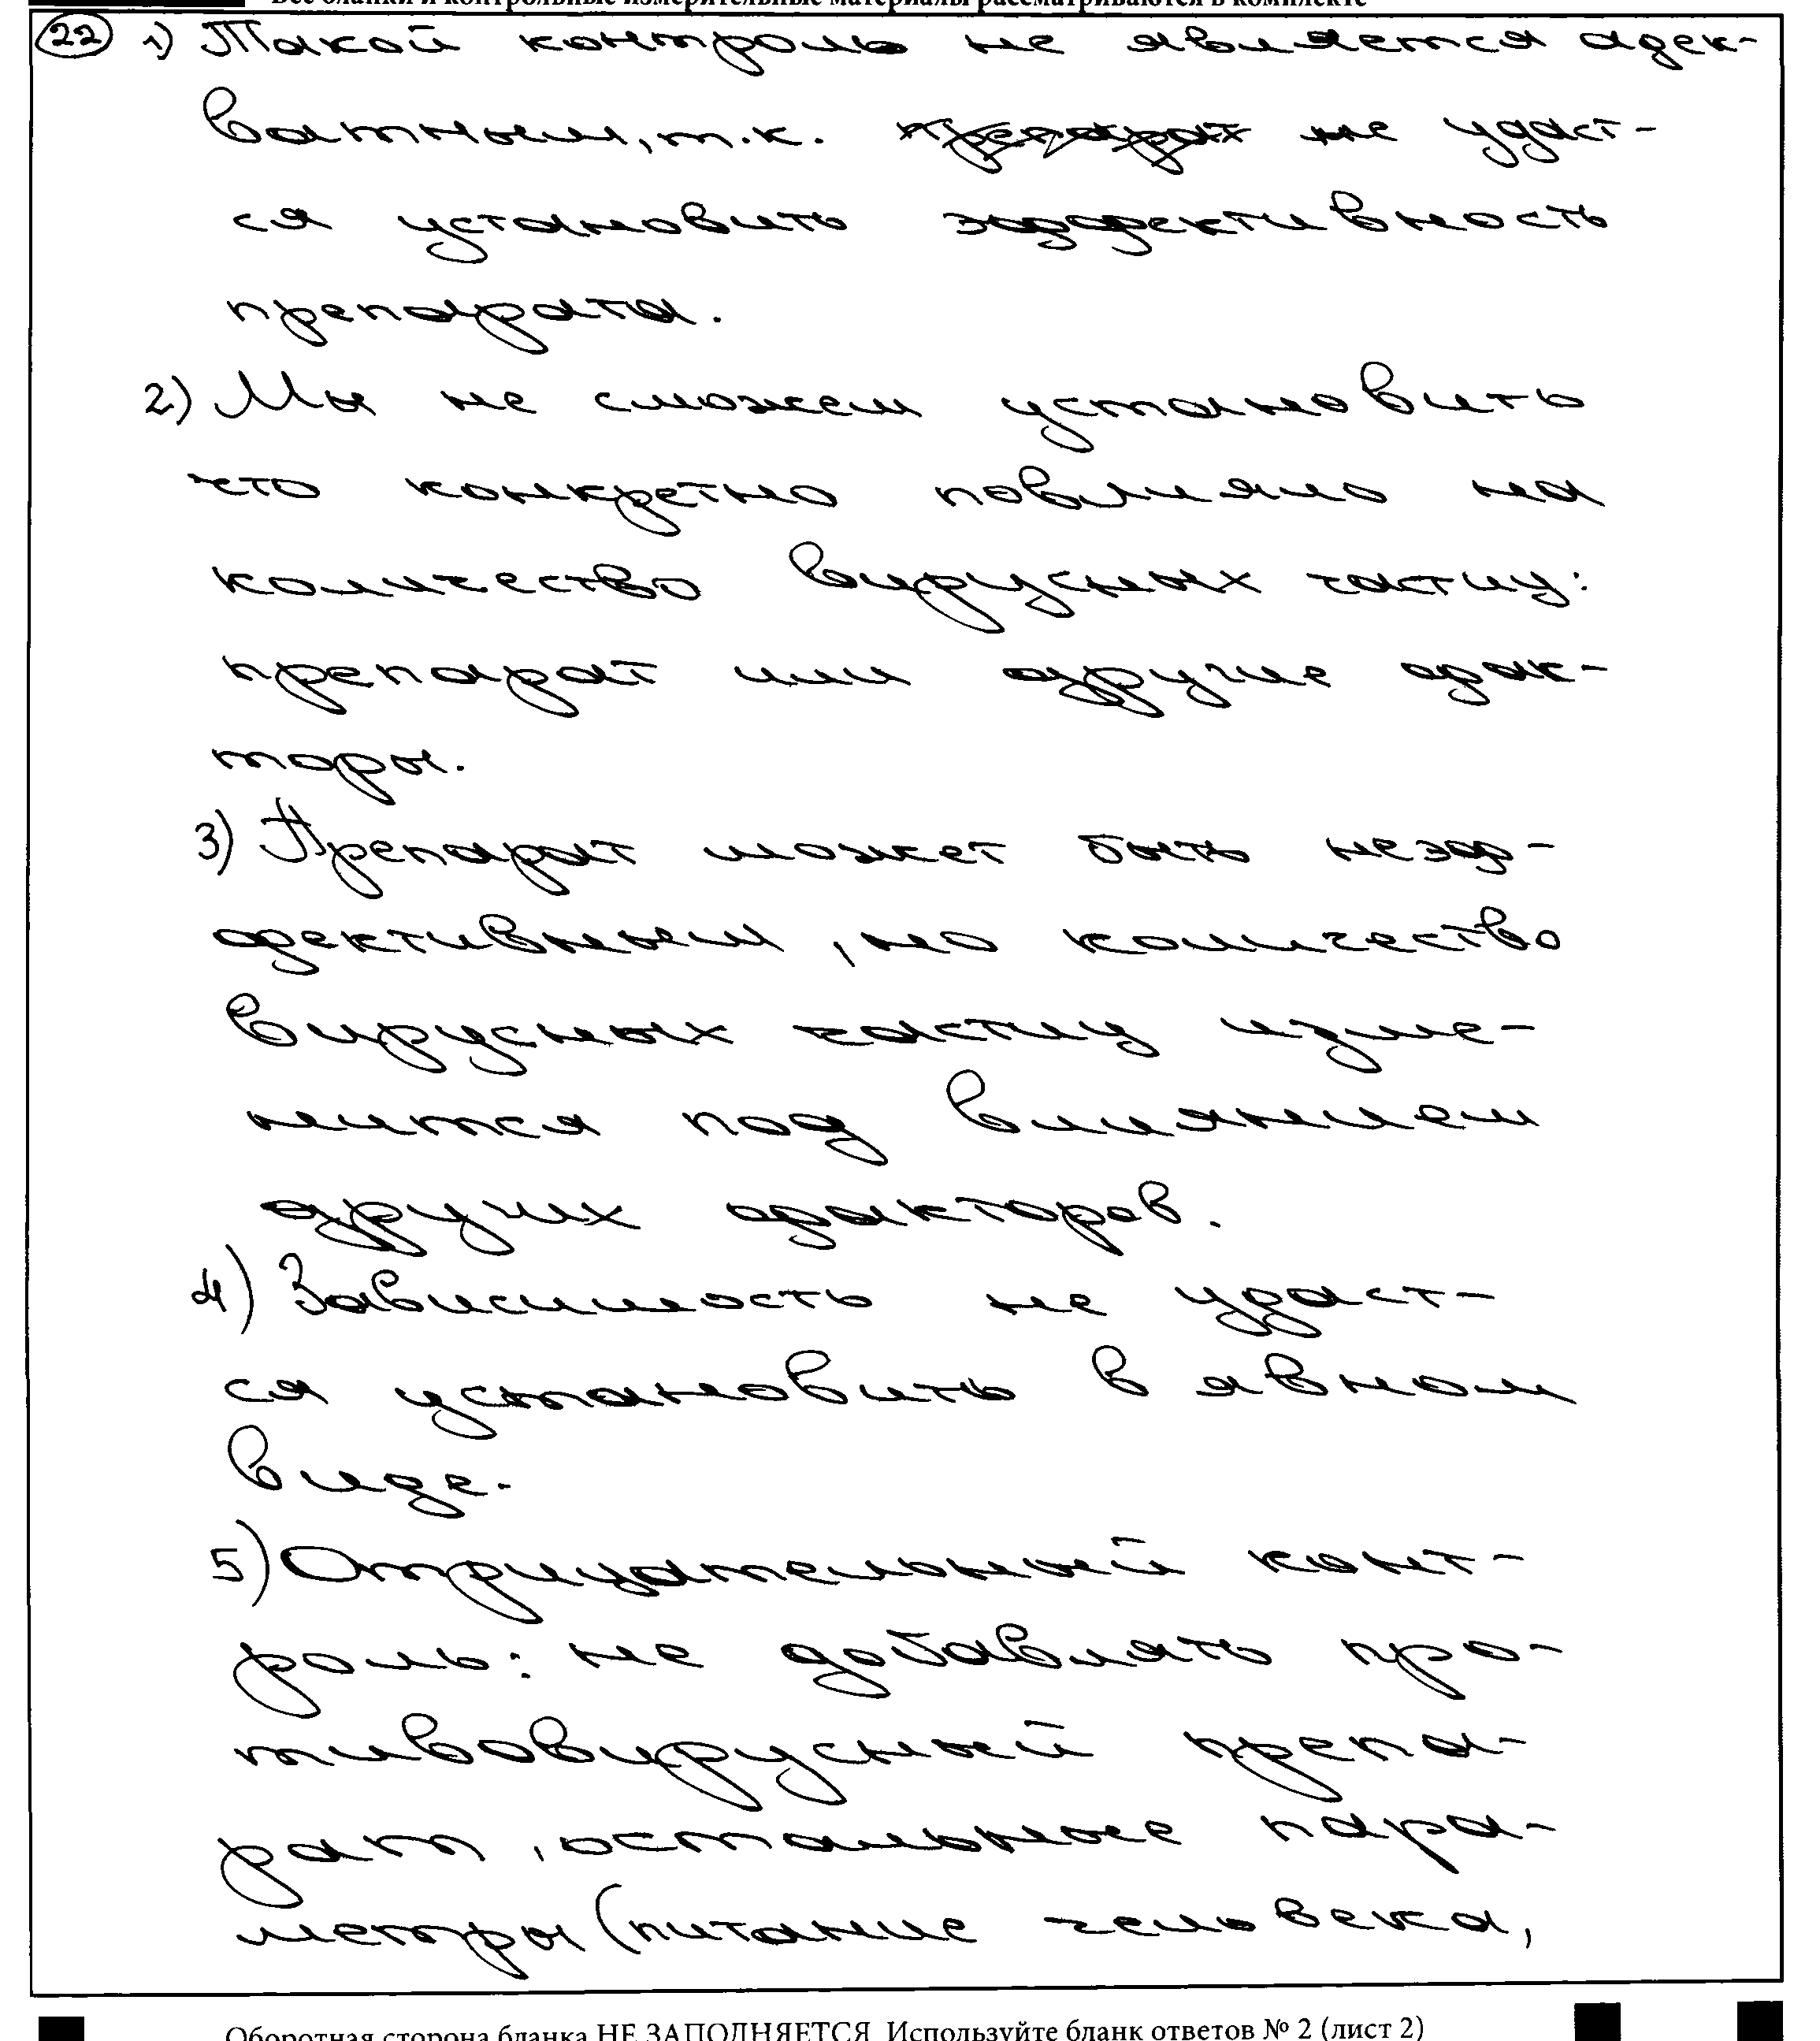 Все бланки и контрольные измерительные материалы рассматриваются в комплекте
22 1) Такой контроль не является адек-
ватным, т.к. не удаст-
ся установить эффективность
препарата.
2) Мы не сможем установить
что конкретно повлияло на
количество вирусных частиц:
препарат или другие фак-
торы.
3) Препарат может быть неэф-
фективным, но количество
вирусных частиц изме-
нится под влиянием
других факторов.
4) Зависимость не удаст-
ся установить в явном
виде.
5) Отрицательный конт-
роль: не добавлять про-
тивовирусный препа-
рат, остальные пара-
метры (питание человека,
Оборотная сторона бланка НЕ ЗАПОЛНЯЕТСЯ. Используйте бланк ответов № 2 (лист 2)